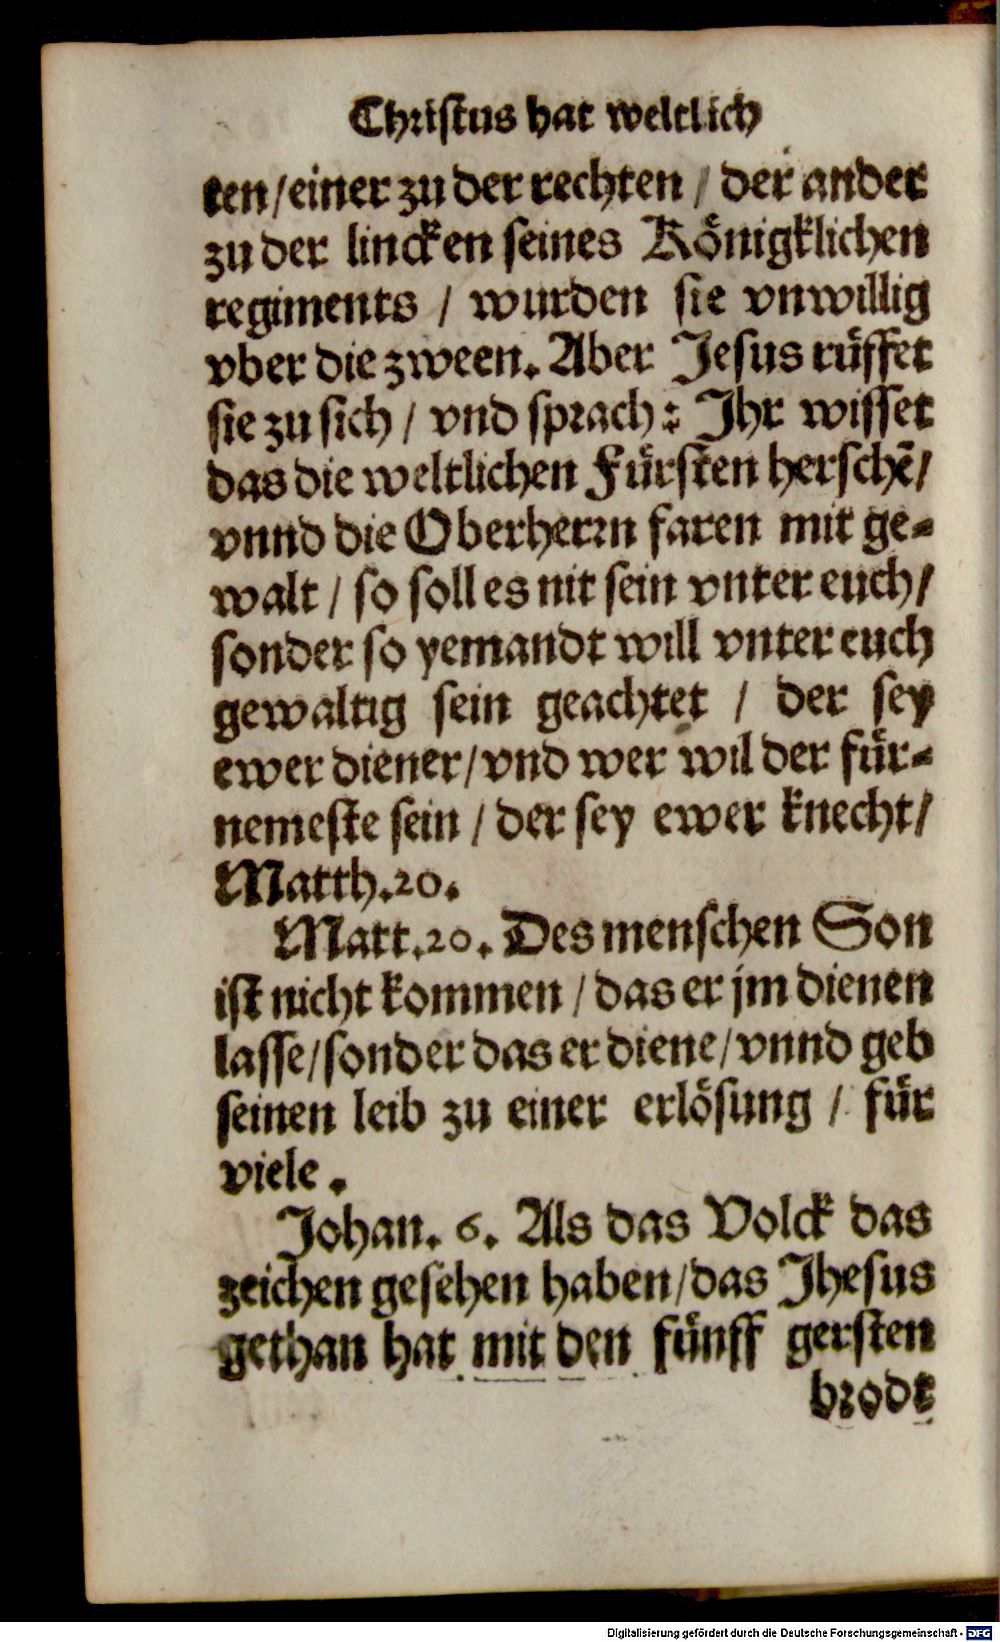 Christus hat weltlich
ten/einer zu der rechten / der ander
zu der lincken seines Königklichen
regiments / wurden sie vnwillig
vber die zween. Aber Jesus rüffet
sie zu sich / vnd sprach: Ihr wisset
das die weltlichen Fürsten herschẽ/
vnnd die Oberherrn faren mit ge-
walt / so soll es nit sein vnter euch/
sonder so yemandt will vnter euch
gewaltig sein geachtet / der sey
ewer diener/vnd wer wil der für-
nemeste sein / der sey ewer knecht/
Matth.20.
Matt.20. Des menschen Son
ist nicht kommen / das er jm dienen
lasse/sonder das er diene/vnnd geb
seinen leib zu einer erlösung / für
viele.
Johan. 6. Als das Volck das
zeichen gesehen haben/das Jhesus
gethan hat mit den fünff gersten
brodt
Digitalisierung gefördert durch die Deutsche Forschungsgemeinschaft - DFG